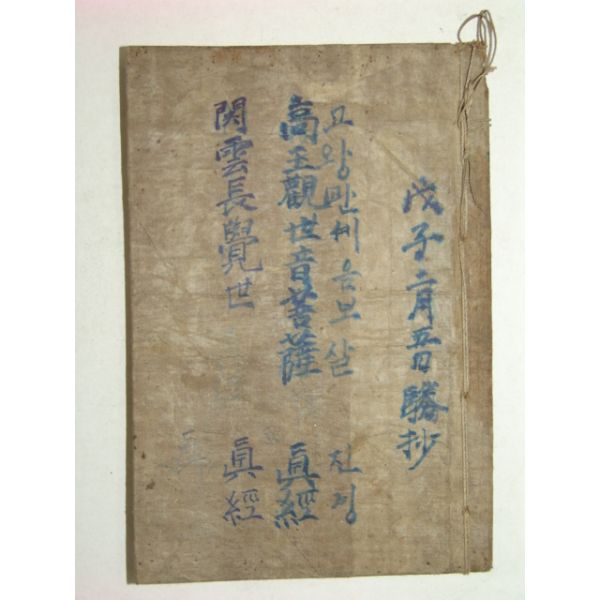 戊子二月五日謄抄
고왕관세음보살 진경
高王觀世音菩薩 眞經
関雲長覺世 眞經